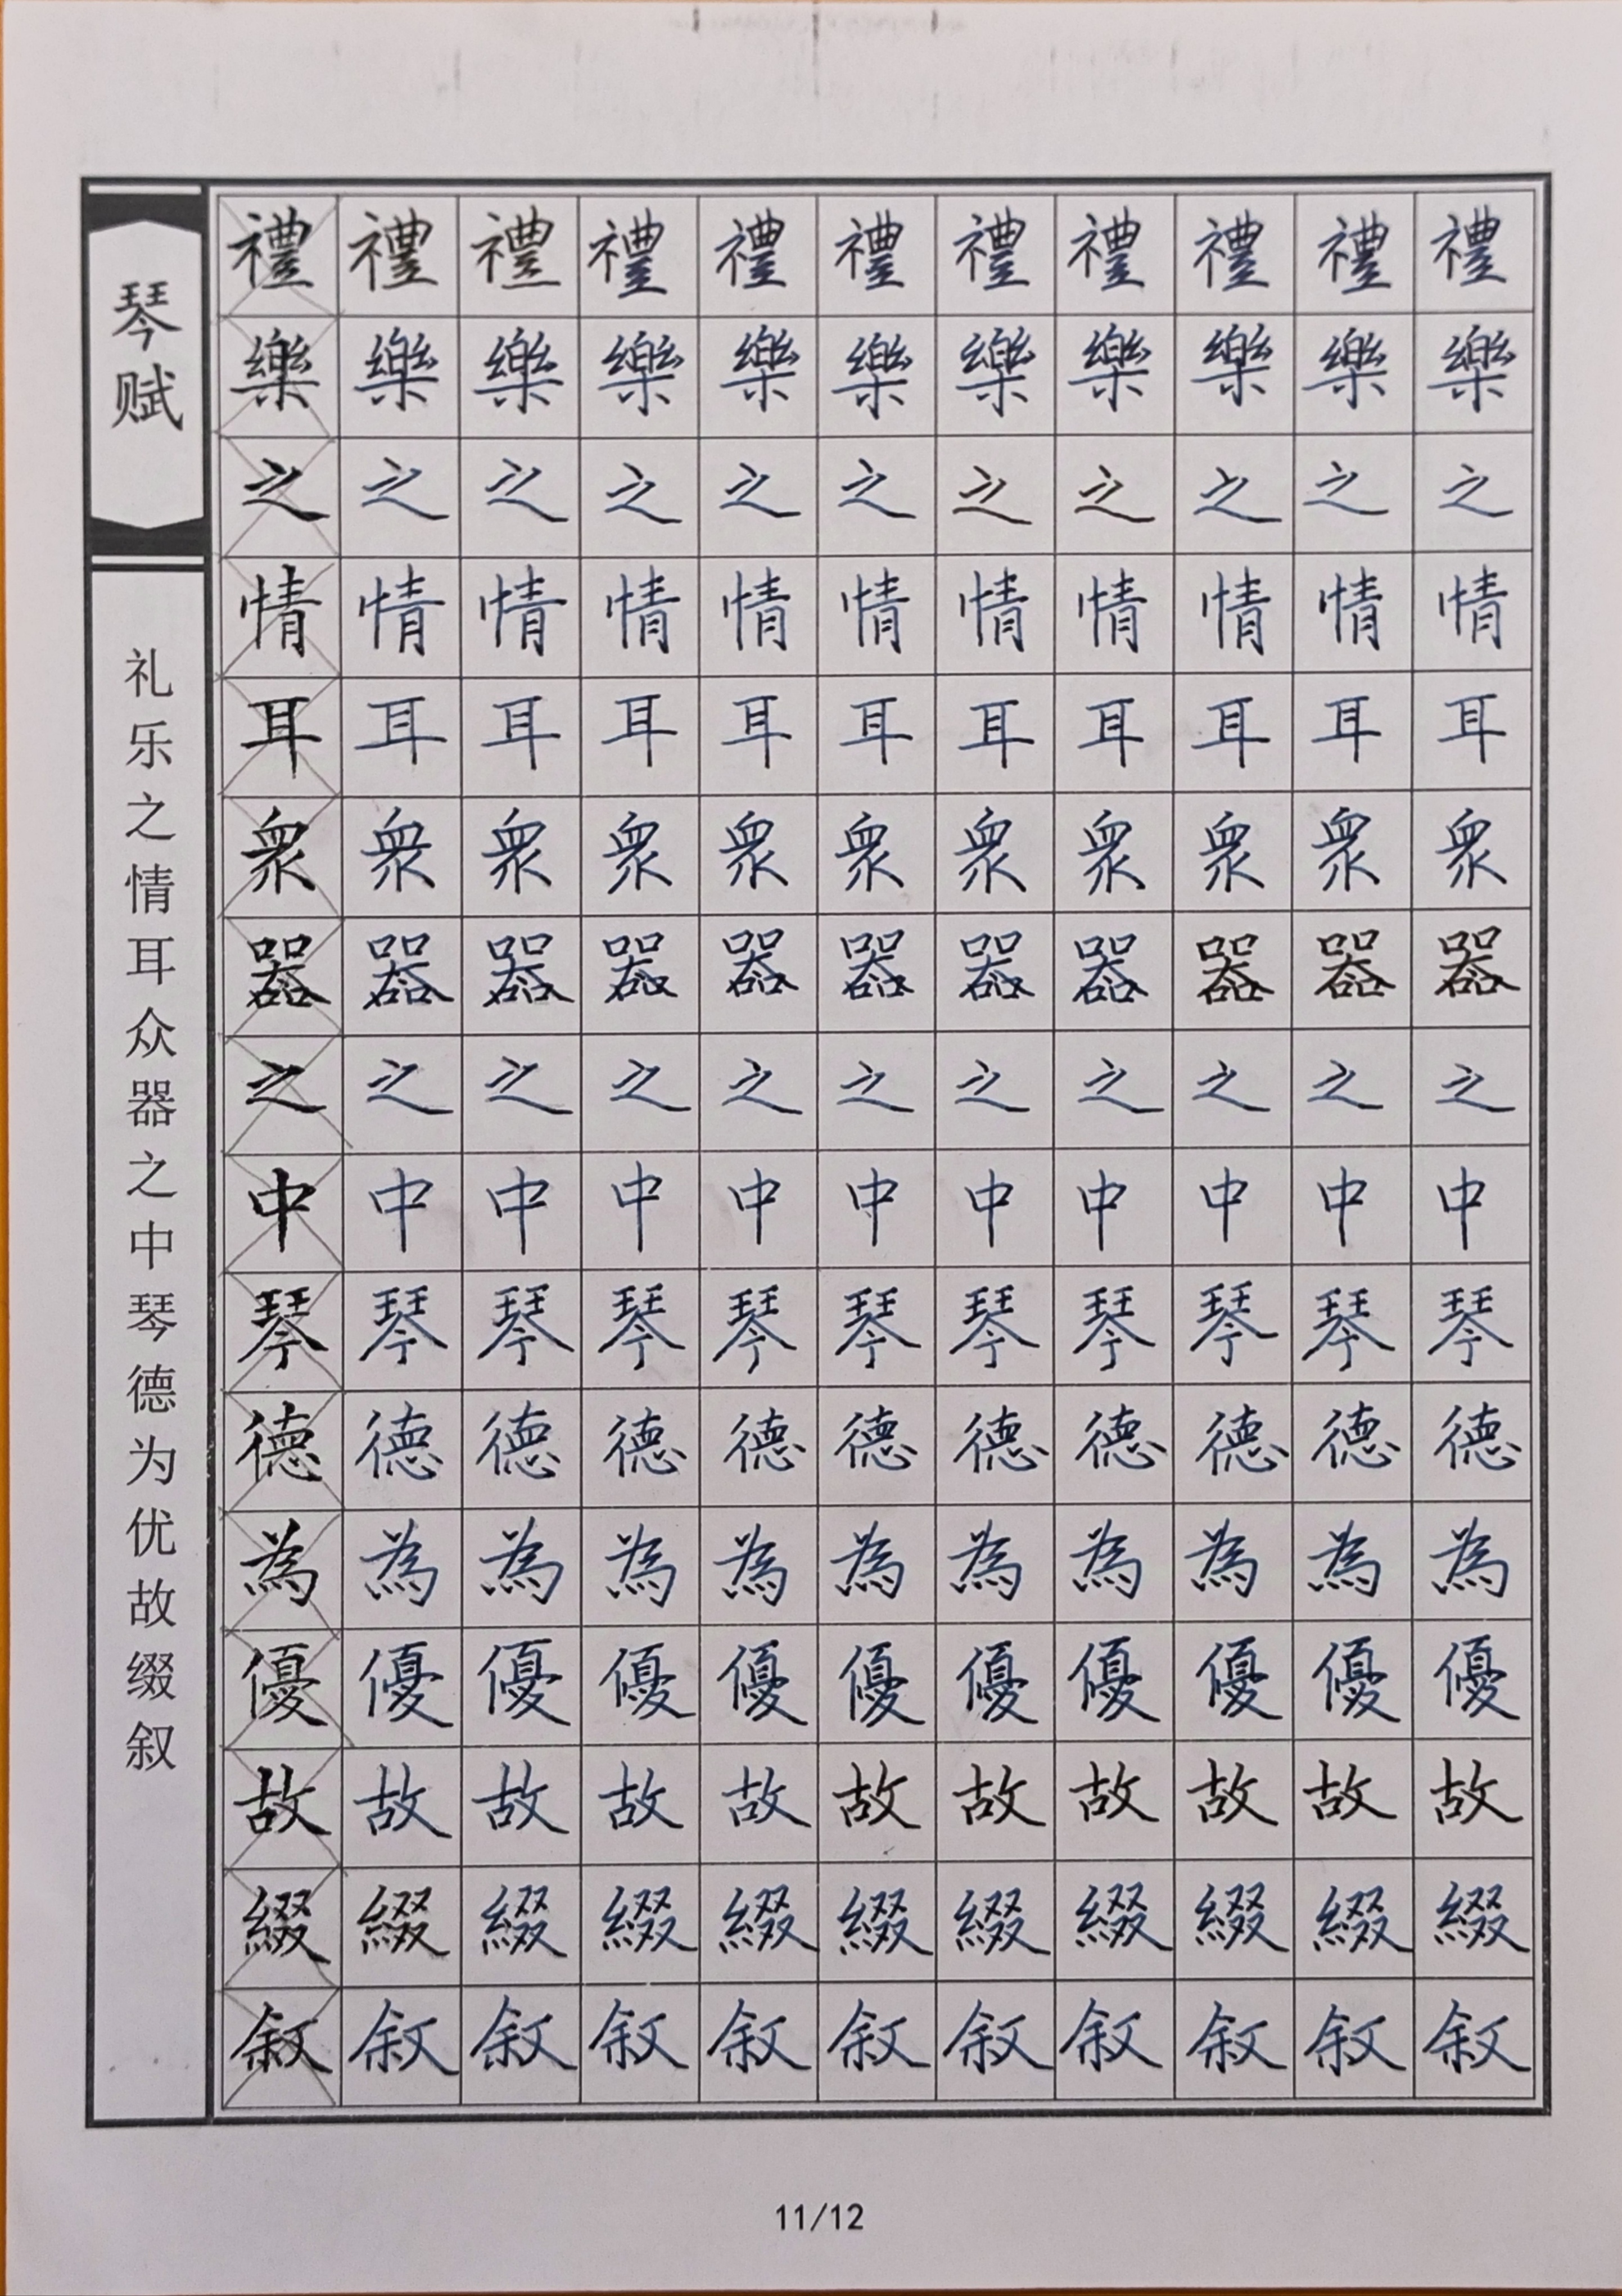 琴赋
礼乐之情耳众器之中琴德为优故缀叙
禮禮禮禮禮禮禮禮禮禮禮
樂樂樂樂樂樂樂樂樂樂樂
之之之之之之之之之之之
情情情情情情情情情情情
耳耳耳耳耳耳耳耳耳耳耳
衆衆衆衆衆衆衆衆衆衆衆
器器器器器器器器器器器
之之之之之之之之之之之
中中中中中中中中中中中
琴琴琴琴琴琴琴琴琴琴琴
德德德德德德德德德德德
為為為為為為為為為為為
優優優優優優優優優優優
故故故故故故故故故故故
綴綴綴綴綴綴綴綴綴綴綴
叙叙叙叙叙叙叙叙叙叙叙
11/12